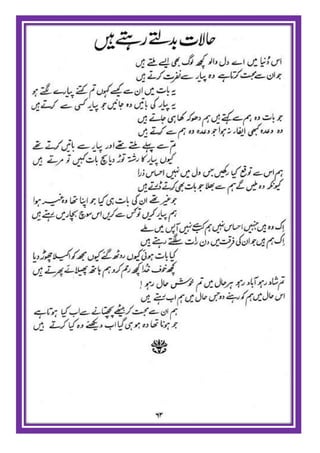 حالات بدلتے رہتے ہیں
اس دنیا میں اے دل والو کچھ لوگ بھی ایسے ملتے ہیں
جو ان سے محبت کرتا ہے وہ پیار سے نفرت کرتے ہیں
یہ بات میں ان سے کیسے کہوں تم کتنے پیارے لگتے ہو
یہ پیار کی باتیں وہ جانیں جو پیار کسی سے کرتے ہیں
جو بات وہ ہم سے کہتے ہیں ہم دھوکہ کھا ہی جاتے ہیں
وہ وعدہ کبھی ایفاء نہ ہوا جو وعدہ وہ ہم سے کرتے ہیں
تم سے پہلے ملتے تھے اور پیار سے باتیں کرتے تھے
کیوں پیار کا رشتہ توڑ دیا سچ بات کہیں تو مرتے ہیں
ہم اس سے توقع کیا رکھیں جس دل میں نہیں احساس ذرا
کیونکہ وہ ملیں گے ہم سے بھلا جو بات بھی کرتے ڈرتے ہیں
جو غیر تھے ان کی بات ہی کیا جو اپنا تھا وہ غیر ہوا
ہم پیار کریں تو کس سے کریں اس سوچ بچار میں رہتے ہیں
اک وہ ہیں جنہیں احساس نہیں ہم کہتے نہیں آپس میں ملے
اک ہم ہیں جو ان کی فرقت میں دن رات سلگتے رہتے ہیں
کیا بات ہوئی کیوں روٹھ گئے کیوں مجھ کو اکیلا چھوڑ دیا
کچھ خوف خدا کچھ رحم کرو ہم ہاتھ پھیلائے پھرتے ہیں
تم شاد رہو آباد رہو ہر حال میں تم خوش حال رہو !
اس حال میں ہم کو رہنے دو جس حال میں ہم اب رہتے ہیں
ہم ان سے محبت کر بیٹھے پچھتانے سے اب کیا ہوتا ہے
جو ہونا تھا وہ ہو ہی گیا اب دیکھئے وہ کیا کرتے ہیں
۶۳